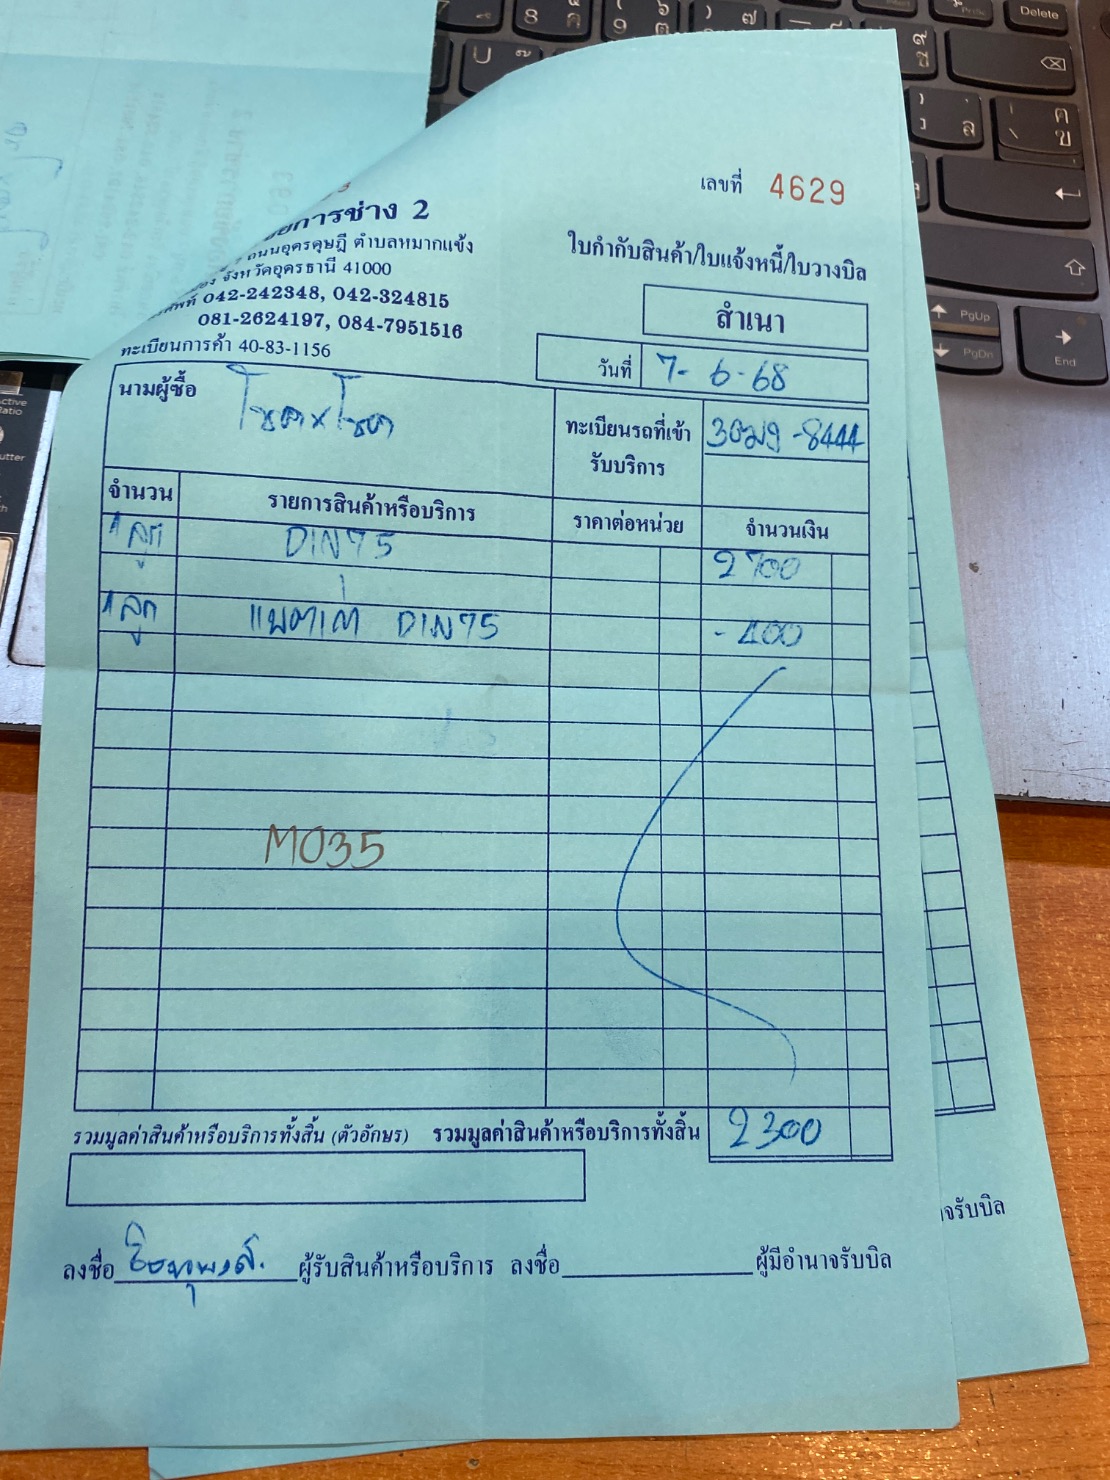 เลขที่ 4629
การช่าง 2
ถนนอุดรดุษฎี ตำบลหมากแข้ง
จังหวัดอุดรธานี 41000
042-242348, 042-324815
081-2624197, 084-7951516
ทะเบียนการค้า 40-83-1156
ใบกำกับสินค้า/ใบแจ้งหนี้/ใบวางบิล
สำเนา
วันที่ 7-6-68
นามผู้ซื้อ โชค x โชค
ทะเบียนรถที่เข้ารับบริการ -8444
จำนวน รายการสินค้าหรือบริการ ราคาต่อหน่วย จำนวนเงิน
1 ลูก DIN75 2700
1 ลูก แบตเก่า DIN75 -400
M035
รวมมูลค่าสินค้าหรือบริการทั้งสิ้น (ตัวอักษร) รวมมูลค่าสินค้าหรือบริการทั้งสิ้น 2300
ลงชื่อ ผู้รับสินค้าหรือบริการ ลงชื่อ ผู้มีอำนาจรับบิล
จรับบิล
Delete
PgUp
PgDn
End